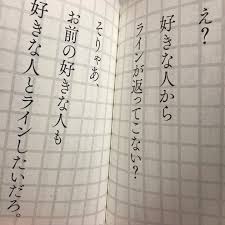 え？
好きな人から
ラインが返ってこない？
そりゃあ、
お前の好きな人も
好きな人とラインしたいだろ。